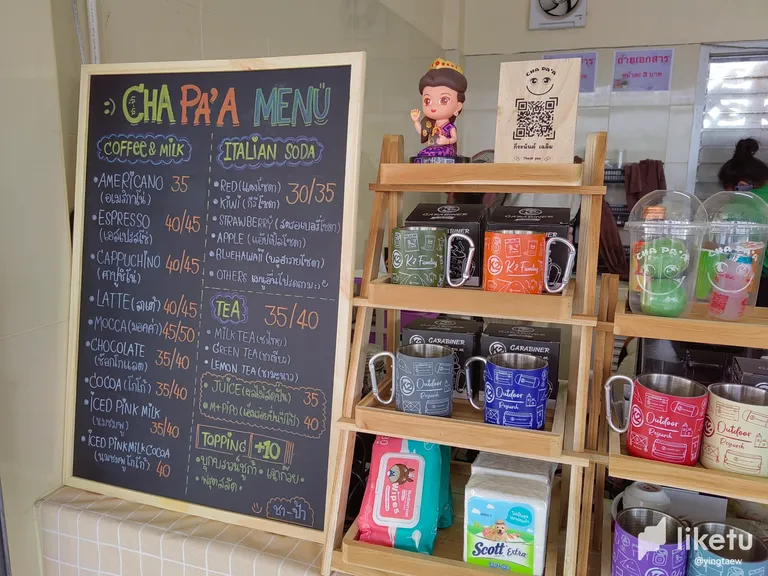 CHA PA'A MENU
COFFEE & MILK
AMERICANO 35
(อเมริกาโน่)
ESPRESSO 40/45
(เอสเปรสโซ่)
CAPPUCHINO 40/45
(คาปูชิโน่)
LATTE (ลาเต้) 40/45
MOCCA (มอคค่า) 45/50
CHOCOLATE 35/40
(ช็อกโกแลต)
COCOA (โกโก้) 35/40
ICED PINK MILK
(นมชมพู) 35/40
ICED PINK MILK COCOA
(นมชมพูโกโก้) 40
ITALIAN SODA
RED (แดงโซดา) 30/35
KIWI (กีวีโซดา)
STRAWBERRY (สตรอเบอรี่โซดา)
APPLE (แอปเปิ้ลโซดา)
BLUEHAWAII (บลูฮาวายโซดา)
OTHERS
TEA 35/40
MILK TEA (ชาไทย)
GREEN TEA (ชาเขียว)
LEMON TEA (ชามะนาว)
JUICE 35
40
TOPPING +10
ชา-ป้า
CHA PA'A
Thank you
ถ่ายเอกสาร
หน้าละ 3 บาท
CARABINER
K2 Family
K2 Family
CARABINER
CARABINER
Outdoor
Research
Outdoor
Research
CHA PA'A
CHA PA'A
Outdoor
Research
Outdoor
Research
Wipes
Scott Extra
Outdoor
liketu
@yingtaew